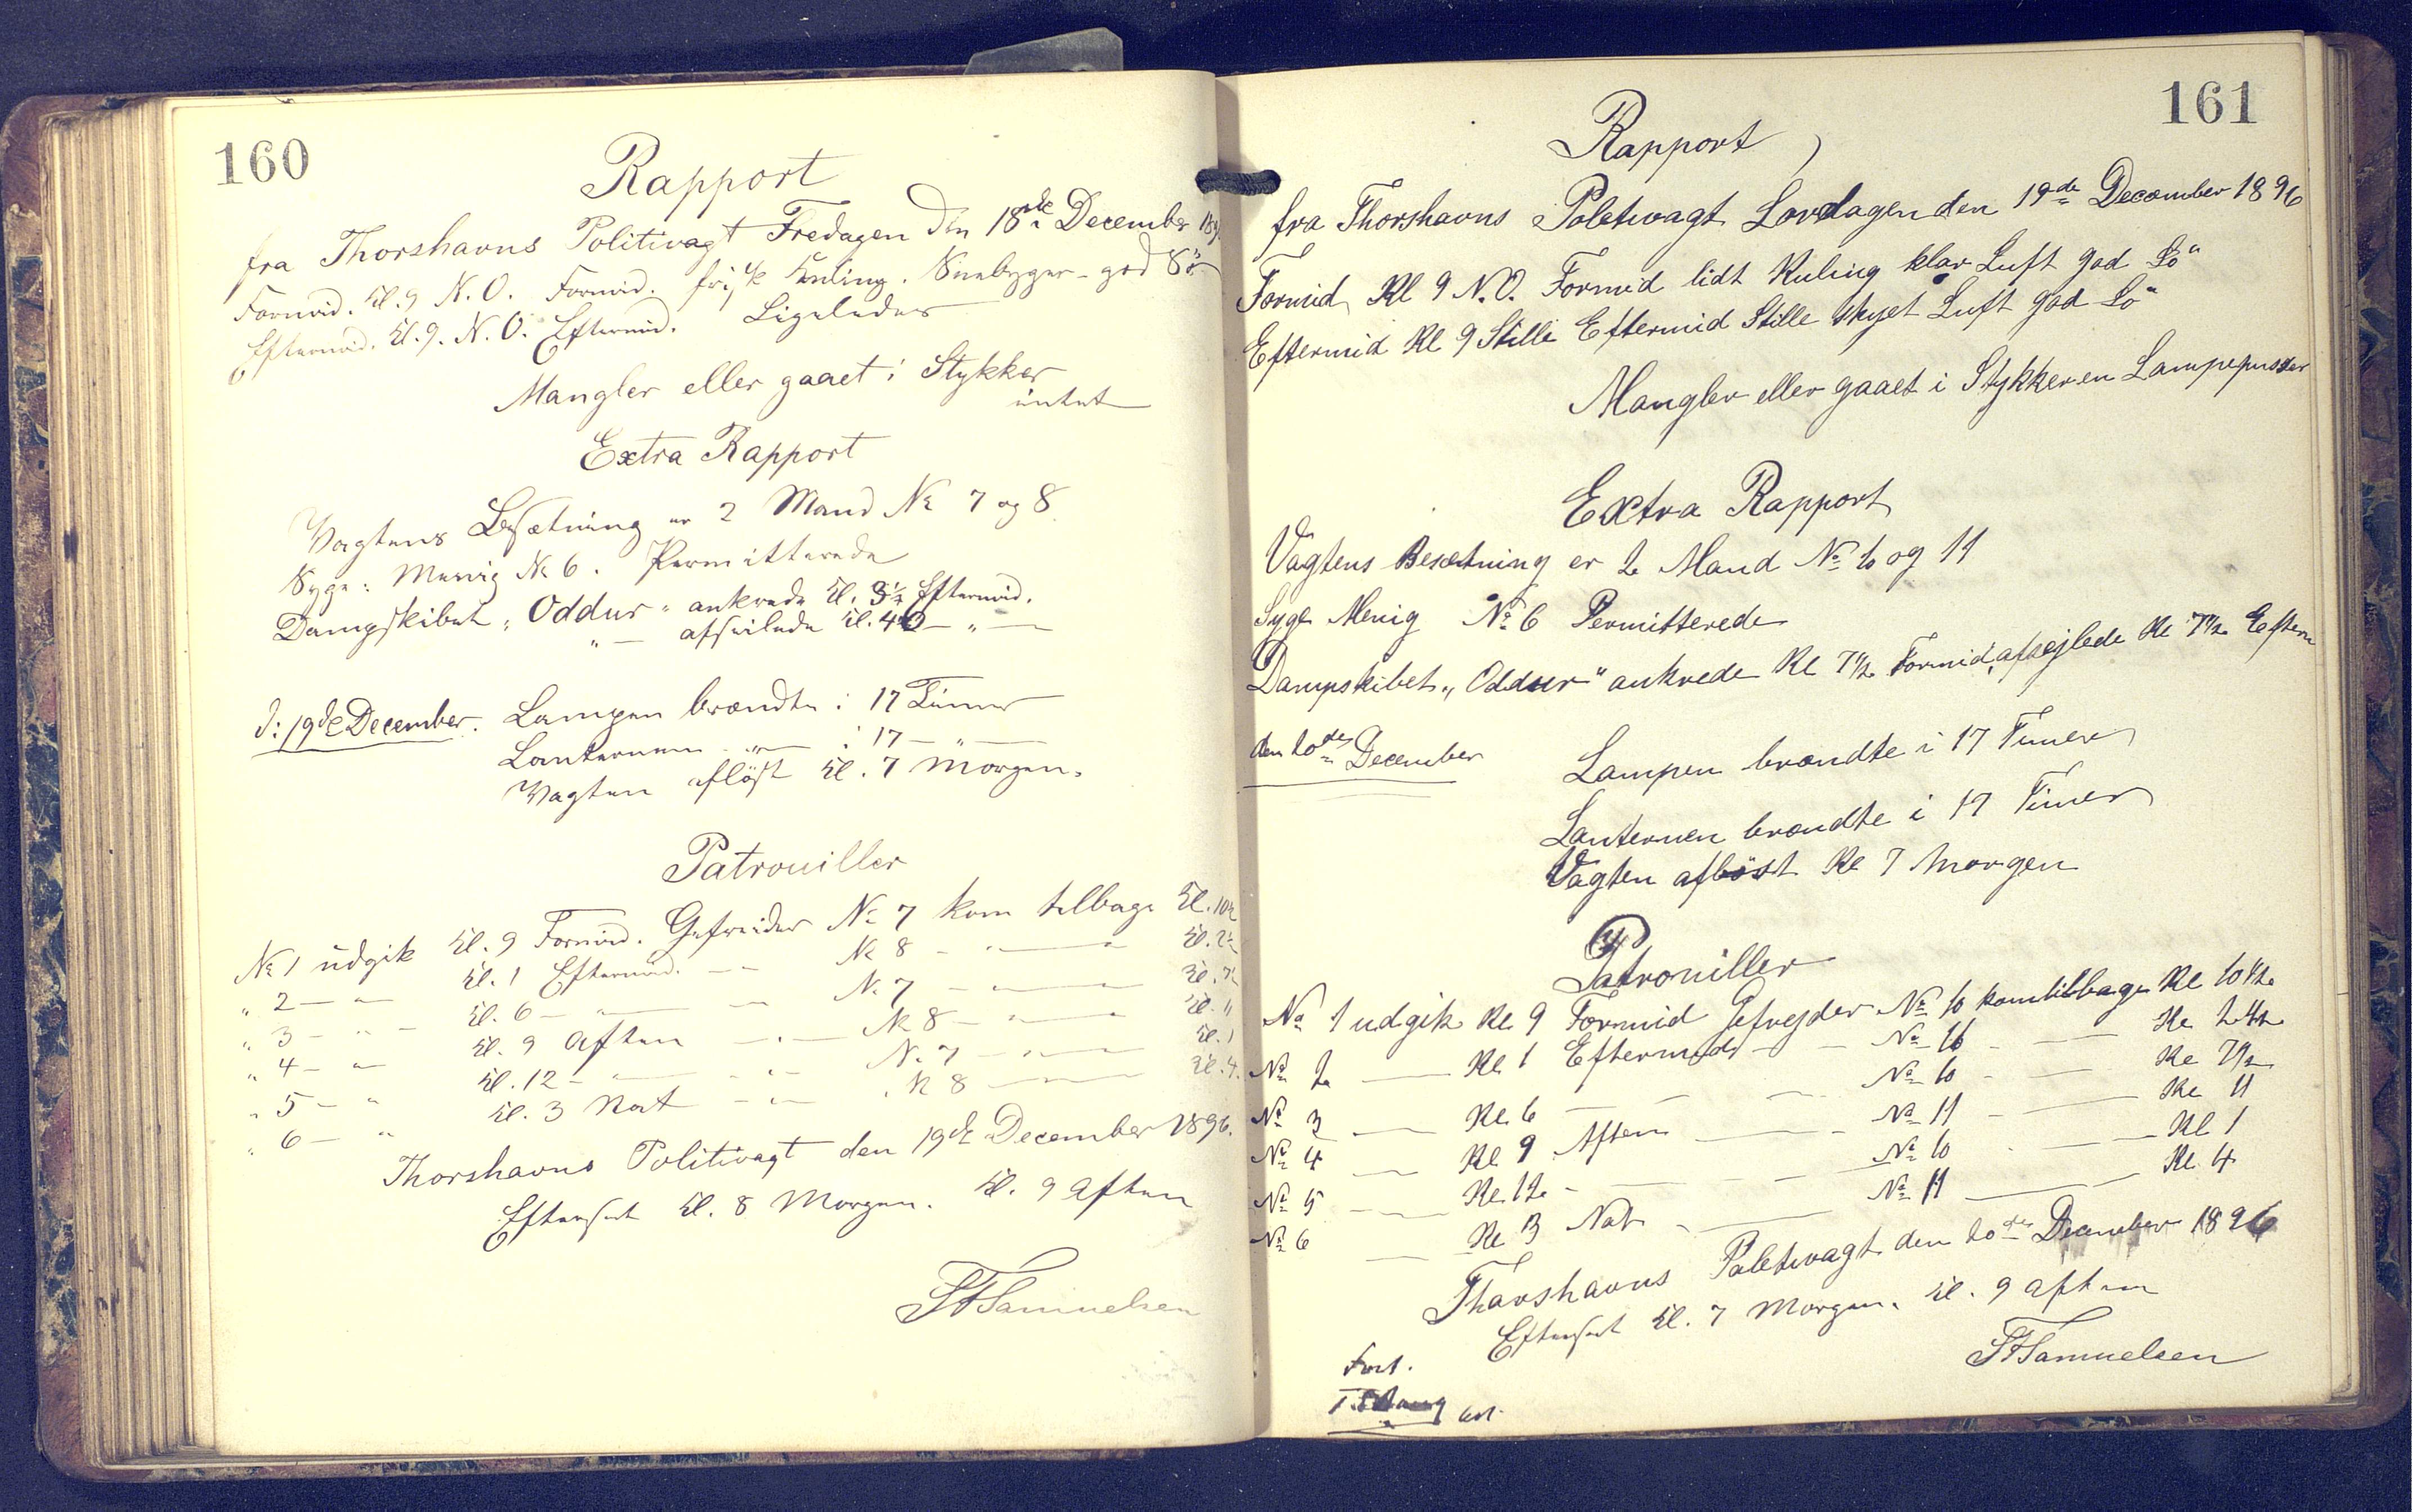 160
Rapport
fra Thorshavns Politivagt Fredagen den 18de December 189
Formid. Kl. 9 N.O. Formid. frisk Kuling. Snebyger - god Sö
Eftermid. Kl. 9. N.O. Eftermid. Ligeledes
Mangler eller gaaet i Stykker
intet
Extra Rapport
Vagtens Besætning er 2 Mand No 7 og 8
Syge: Menig No 6. Permitterede
Dampskibet „Oddur“ ankrede Kl. 3½ Eftermid.
" — afseilede Kl. 40 — " —
d: 19de December. Lampen brændte i 17 Timer
Lanternen — " — i 17 — " —
Vagten aflöst Kl. 7 Morgen.
Patrouiller
No 1 udgik Kl. 9 Formid. Gefreider No 7 kom tilbage Kl. 10½
" 2 — " Kl. 1 Eftermid. — No 8 — " — Kl. 2½
" 3 — " — Kl. 6 — " — No 7 — " — Kl. 7½
" 4 — " Kl. 9 Aften — " — No 8 — " — Kl. 11
" 5 — " Kl. 12 — " — No 7 — " — Kl. 1
" 6 — " Kl. 3 Nat — " — No 8 — Kl. 4.
Thorshavns Politivagt den 19de December 1896.
Efterset Kl. 8 Morgen. Kl. 9 Aften
Samuelsen
161
Rapport
fra Thorshavns Poletivagt Lørdagen den 19de December 1896
Formid Kl 9 N.O. Formid lidt Kuling klar Luft god Sö"
Eftermid Kl 9 Stille Eftermid Stille skyet Luft god Sö"
Mangler eller gaaet i Stykker en Lampepudser
Extra Rapport
Vagtens Besætning er 2 Mand No 10 og 11
Syge Menig No 6 Permitterede
Dampskibet „Oddur“ ankrede Kl 7½ Formid, afsejlede Kl 7½ Eeftem
den 20de December
Lampen brændte i 17 Timer
Lanternen brændte i 17 Timer
Vagten aflöst Kl 7 Morgen
Patrouiller
No 1 udgik Kl 9 Formid Gefrejder No 10 kom tilbage Kl 10½
No 2 — Kl 1 Eftermid — No — Kl 2½
No 3 — Kl 6 — No 10 — Kl 7½
No 4 — Kl 9 Aften — No 11 — Kl 11
No 5 — Kl 12 — No 10 — Kl 1
No 6 — Kl 3 Nat — No 11 — Kl 4
Thorshavns Poletivagt den 20de December 1896
Efterset Kl. 7 Morgen. Kl. 9 Aften
Samuelsen